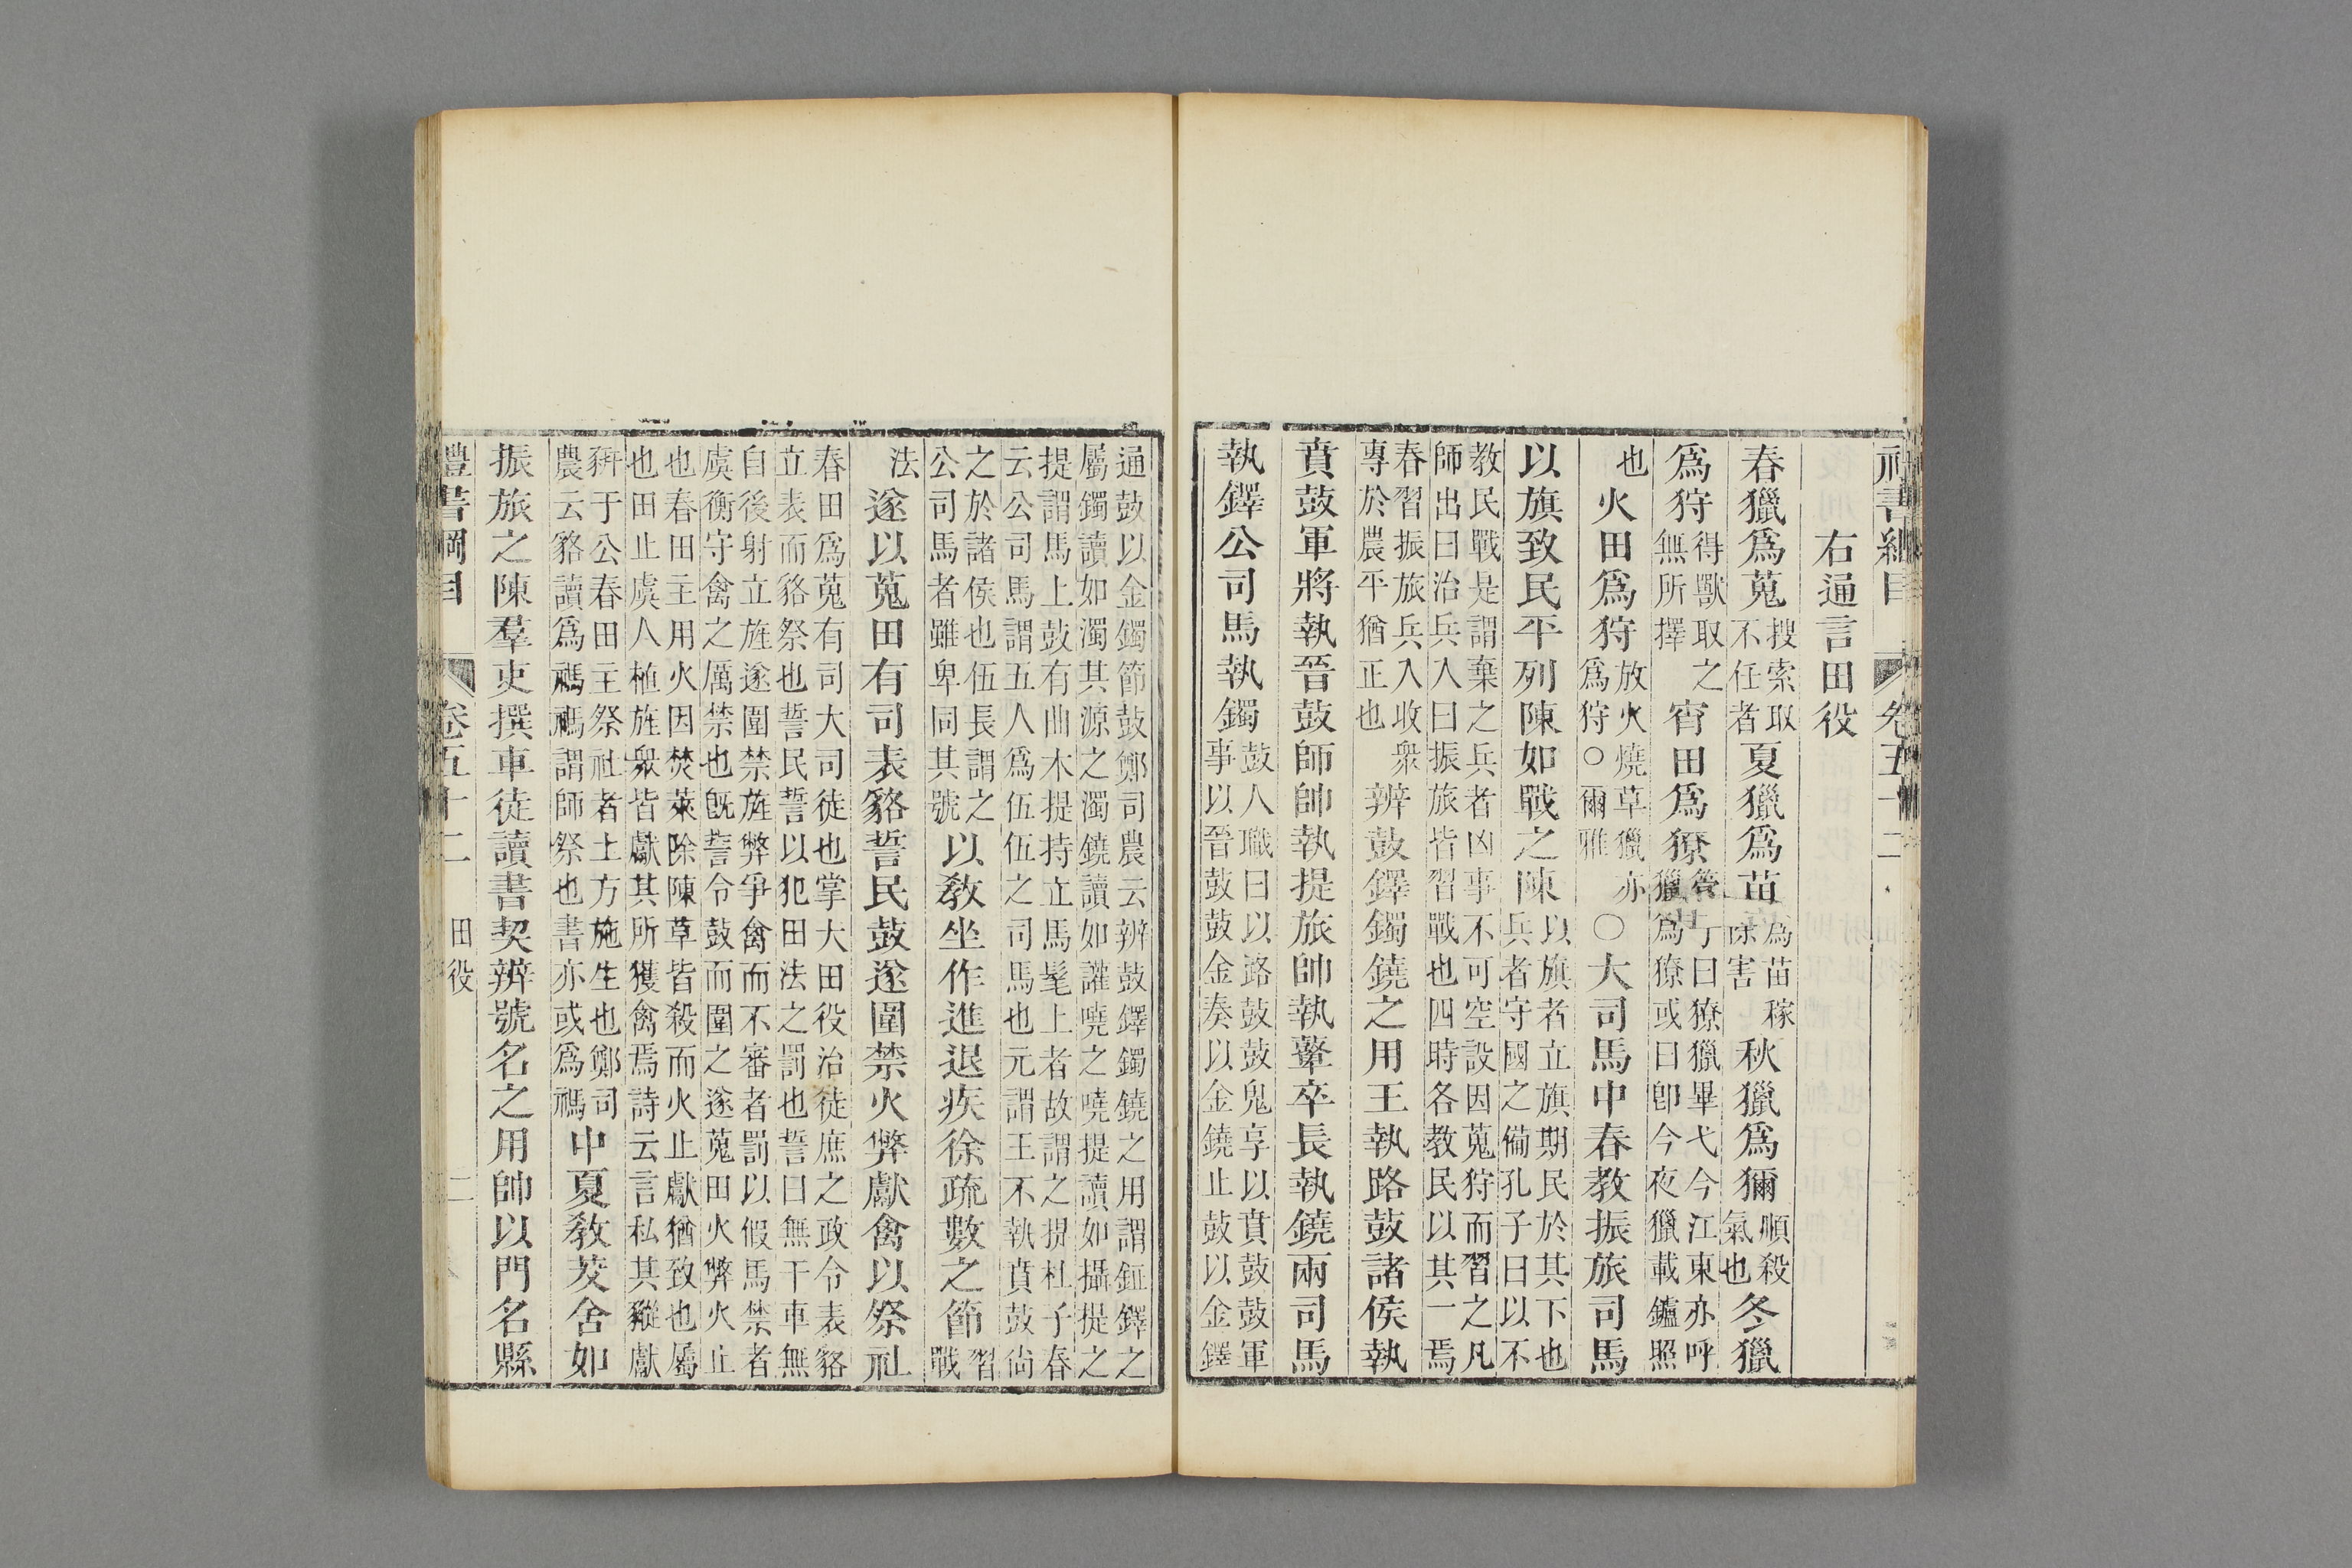 卷五十二
右通言田役
春獵爲蒐搜索取不任者夏獵爲苗爲苗稼除害秋獵爲獮順殺氣也冬獵
爲狩得獸取之無所擇宵田爲獠丁曰獠獵畢弋今江東亦呼獵爲獠或曰卽今夜獵載鑪照
也火田爲狩放火燒草獵亦爲狩○爾雅○大司馬中春教振旅司馬
以旗致民平列陳如戰之陳以旗者立旗期民於其下也兵者守國之備孔子曰以不
教民戰是謂棄之兵者凶事不可空設因蒐狩而習之凡師出曰治兵入曰振旅皆習戰也四時各教民以其一焉
春習振旅兵入收衆專於農平猶正也辨鼓鐸鐲鐃之用王執路鼓諸侯執
賁鼓軍將執晉鼓師帥執提旅帥執鼙卒長執鐃兩司馬
執鐸公司馬執鐲鼓人職曰以路鼓鼓鬼享以賁鼓鼓軍事以晉鼓鼓金奏以金鐃止鼓以金鐸
通鼓以金鐲節鼓鄭司農云辨鼓鐸鐲鐃之用謂鉦鐸之屬鐲讀如濁其源之濁鐃讀如讙嘵之嘵提讀如攝提之
提謂馬上鼓有曲木提持立馬髦上者故謂之提杜子春云公司馬謂五人爲伍伍之司馬也元謂王不執賁鼓尙
之於諸侯也伍長謂之公司馬者雖卑同其號以教坐作進退疾徐疏數之節習戰
法遂以蒐田有司表貉誓民鼓遂圍禁火弊獻禽以祭社
春田爲蒐有司大司徒也掌大田役治徒庶之政令表貉立表而貉祭也誓民誓以犯田法之罰也誓曰無干車無
自後射立旌遂圍禁旌弊爭禽而不審者罰以假馬禁者虞衡守禽之厲禁也旣誓令鼓而圍之遂蒐田火弊火止
也春田主用火因焚萊除陳草皆殺而火止獻猶致也屬也田止虞人植旌衆皆獻其所獲禽焉詩云言私其豵獻
豜于公春田王祭社者土方施生也鄭司農云貉讀爲禡禡謂師祭也書亦或爲禡中夏教茇舍如
振旅之陳羣吏撰車徒讀書契辨號名之用帥以門名縣
禮書綱目 卷五十二 田役 二